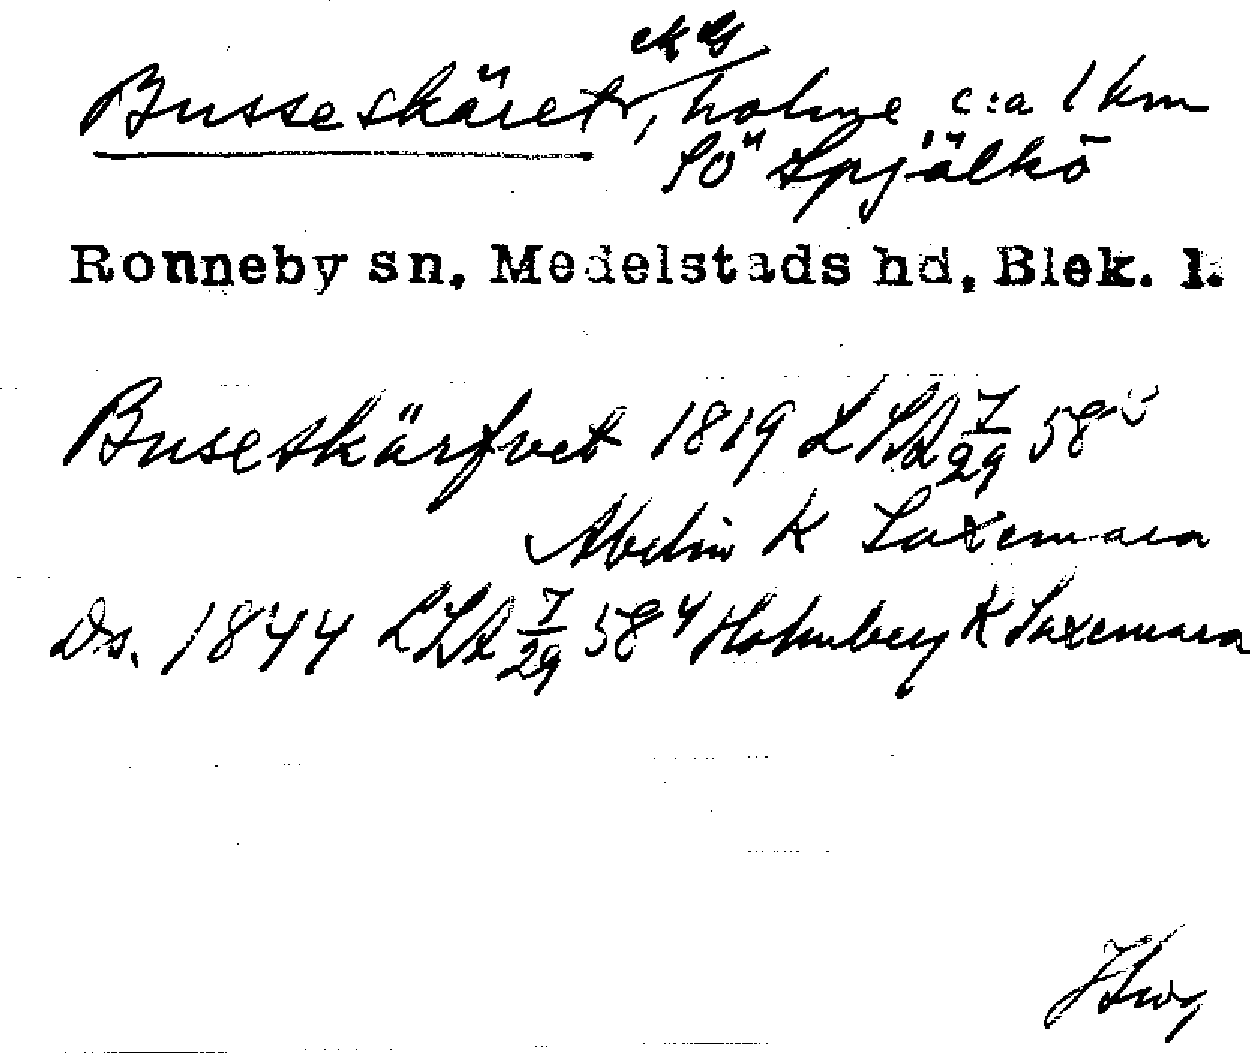 ek G
Busseskäret, holme c:a 1 km
SÖ Spjälkö
Ronneby sn, Medelstads hd, Blek. l.
Buseskärfvet 1819 LSA 7/29 58
Abelin K Saxemara
Ds. 1844 LSA 7/29 58 4 Holmberg K Saxemara